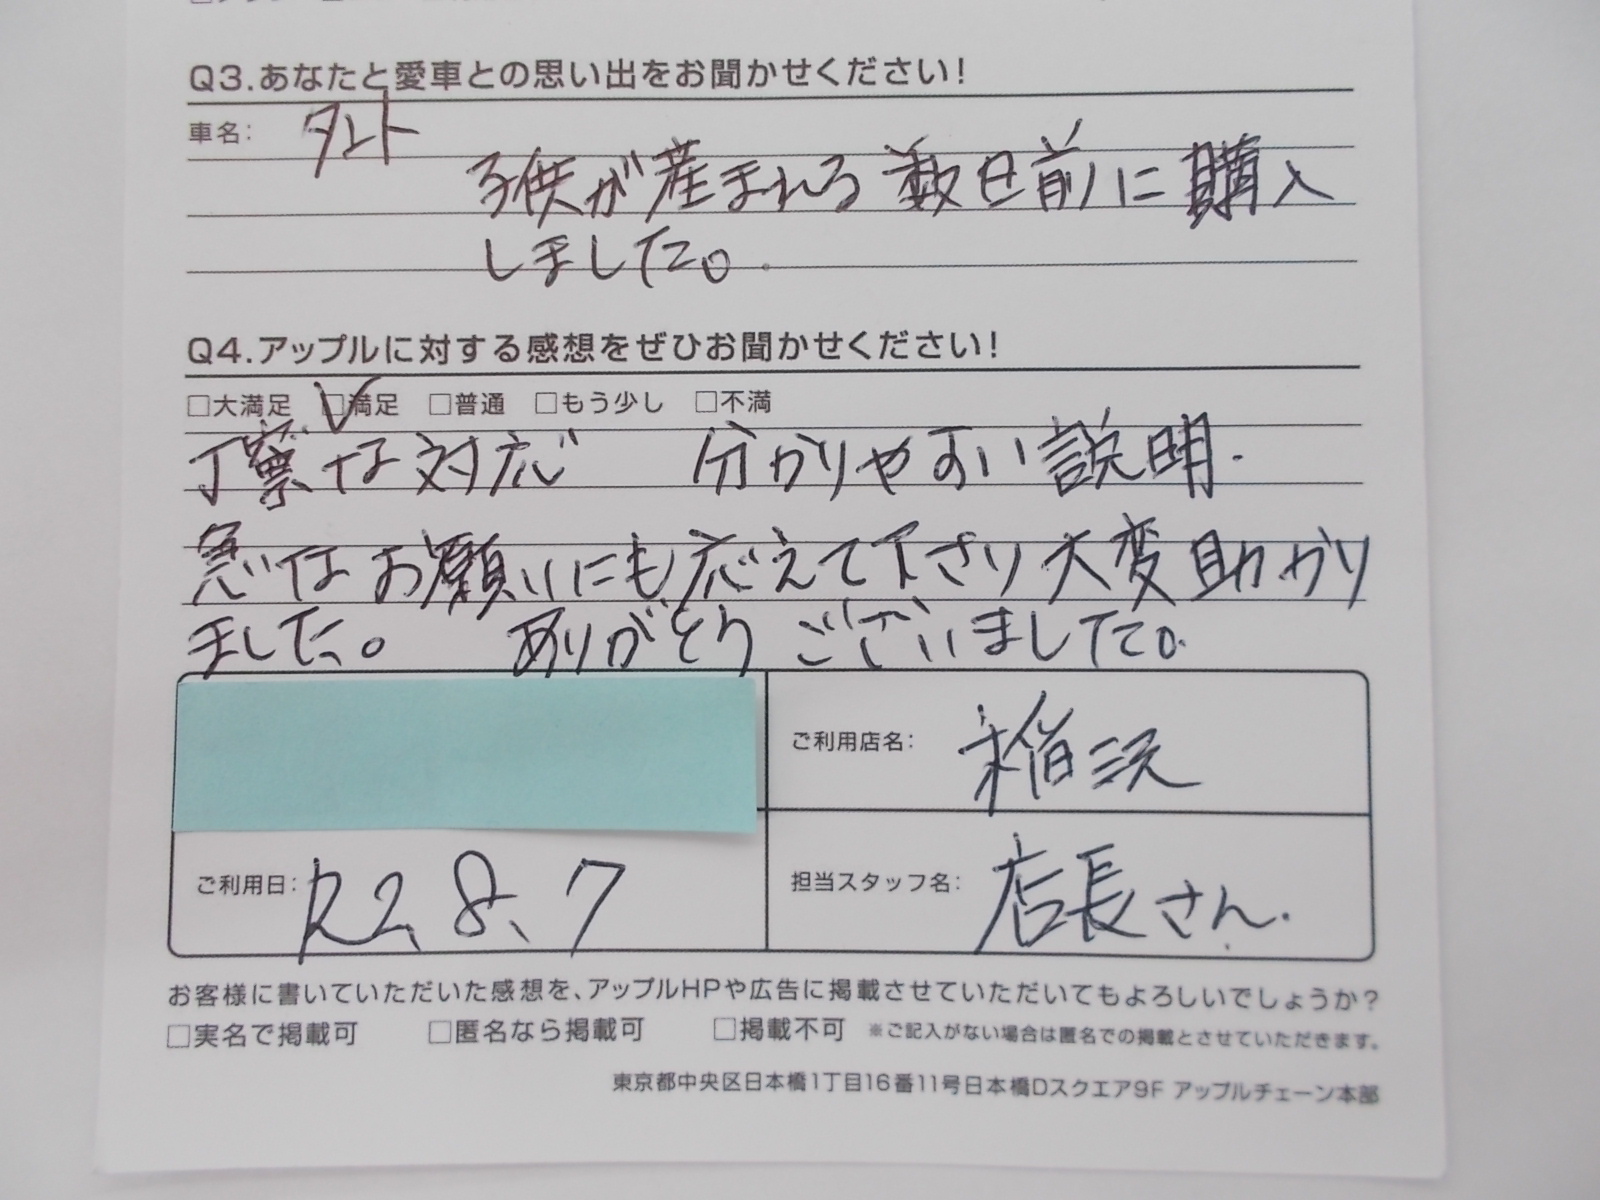 Q3.あなたと愛車との思い出をお聞かせください!
車名: タント
子供が産まれる数日前に購入
しました。
Q4.アップルに対する感想をぜひお聞かせください!
□大満足 ☑満足 □普通 □もう少し □不満
丁寧な対応 分かりやすい説明.
急なお願いにも応えて下さり大変助かり
ました。 ありがとうございました。
ご利用店名: 稲沢
ご利用日: R2、8、7
担当スタッフ名: 店長さん.
お客様に書いていただいた感想を、アップルHPや広告に掲載させていただいてもよろしいでしょうか?
□実名で掲載可 □匿名なら掲載可 □掲載不可 ※ご記入がない場合は匿名での掲載とさせていただきます。
東京都中央区日本橋1丁目16番11号日本橋Dスクエア9F アップルチェーン本部